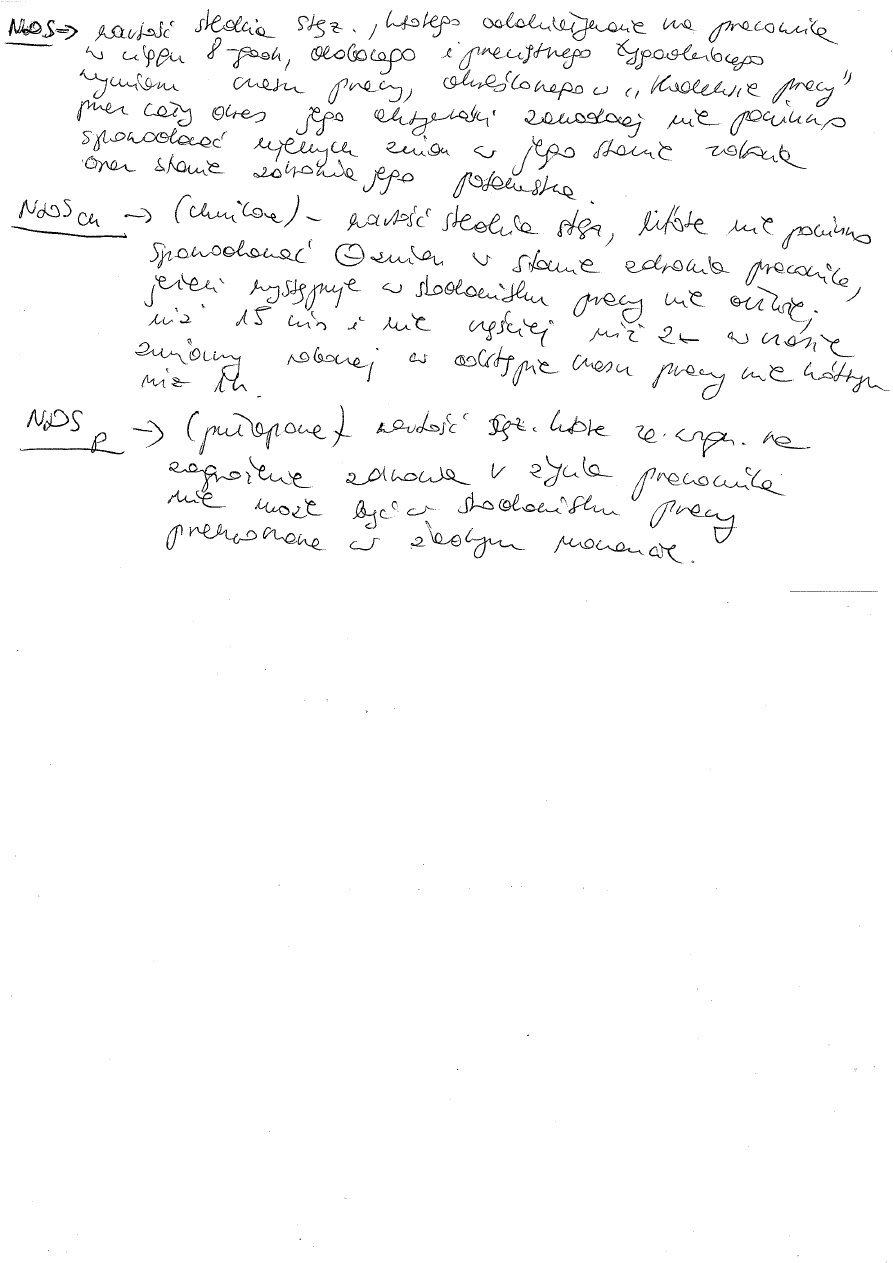 NDS => wartość średnia stęż., którego oddziaływanie na pracownika
w ciągu 8-godz, dobowego i przeciętnego tygodniowego
wymiaru czasu pracy, określonego w „Kodeksie pracy”
przez cały okres jego aktywności zawodowej nie powinno
spowodować ujemnych zmian w jego stanie zdrowia
oraz stanie zdrowia jego potomstwa.
NDS Ch -> (chwilowe) - wartość średnia stęż, które nie powinno
spowodować ⊖ zmian w stanie zdrowia pracownika,
jeżeli występuje w środowisku pracy nie dłużej
niż 15 min i nie częściej niż 2x w czasie
zmiany roboczej w odstępie czasu pracy nie krótszym
niż 1h.
NDS P -> (pułapowe) wartość stęż. które ze wzgl. na
zagrożenie zdrowia v życia pracownika
nie może być w środowisku pracy
przekroczone w żadnym momencie.